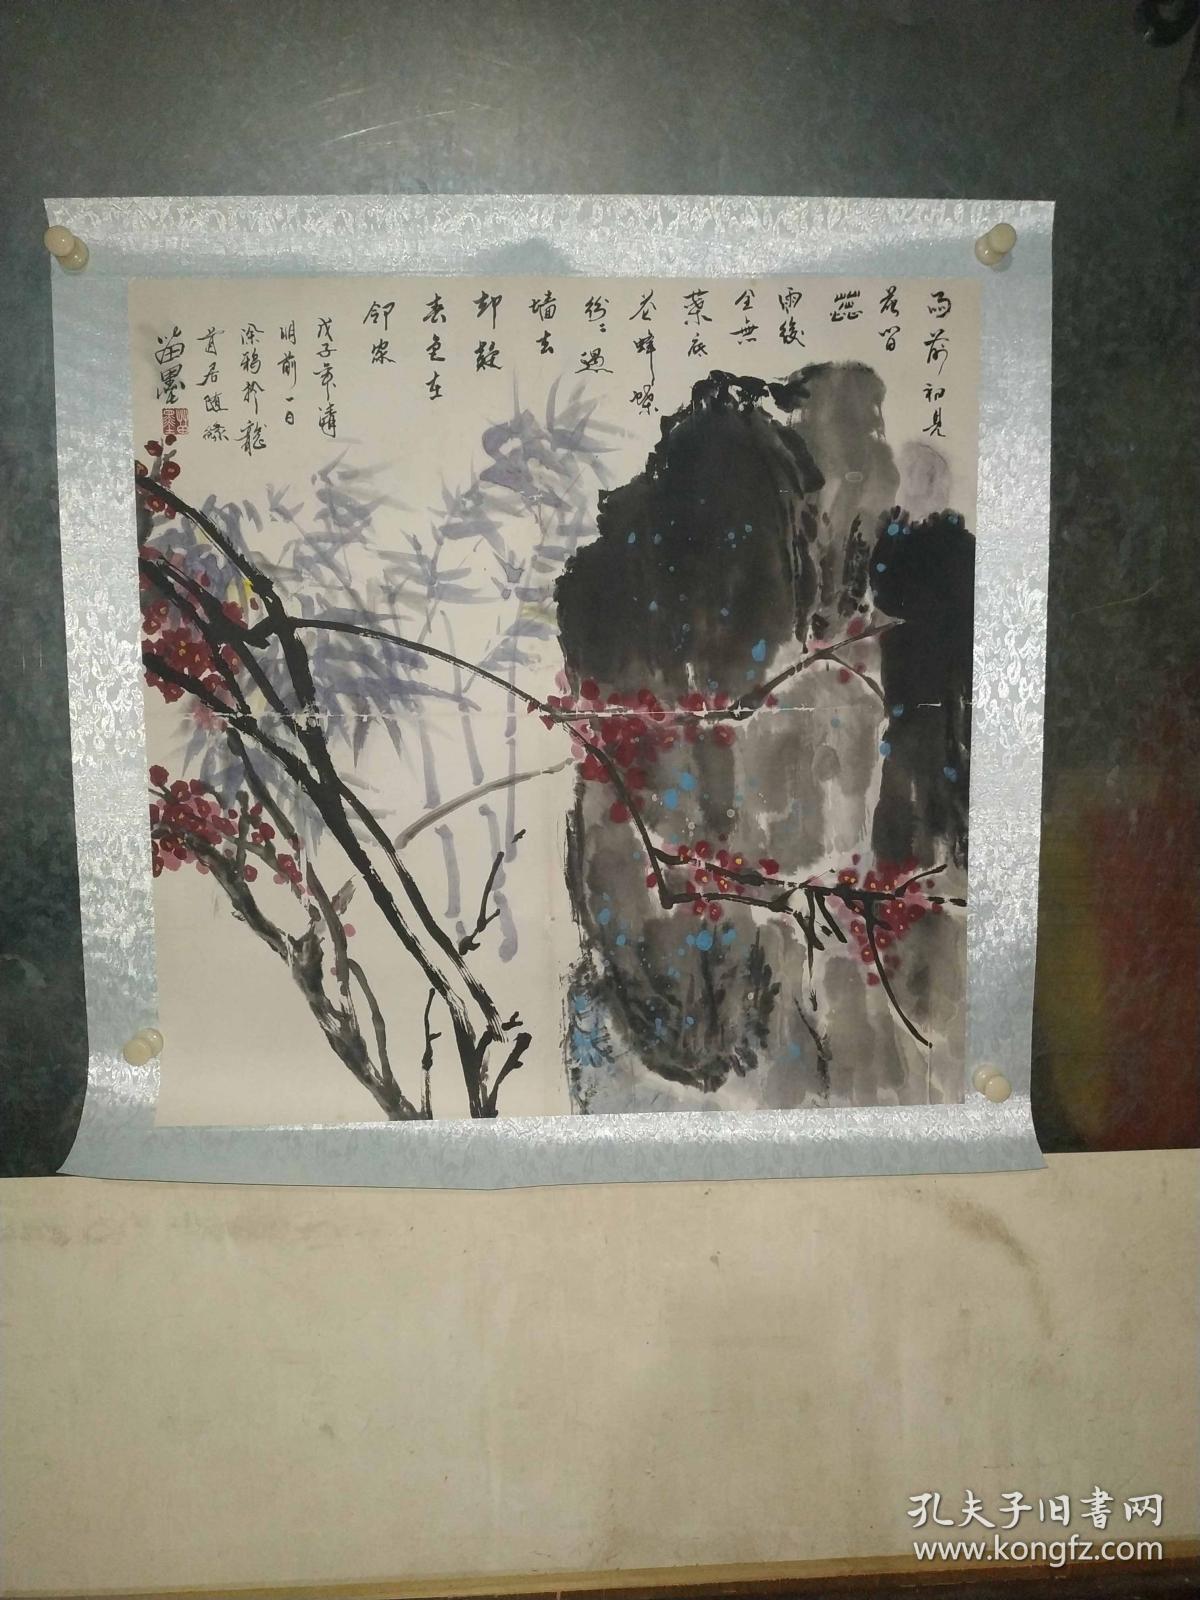 雨前初見
花間
蕊
雨後
全無
葉底
花蜂蝶
紛紛過
墻去
却疑
春色在
邻家
戊子年清
明前一日
涂鴉於龍
首居随緣
苗墨
孔夫子旧书网
www.kongfz.com